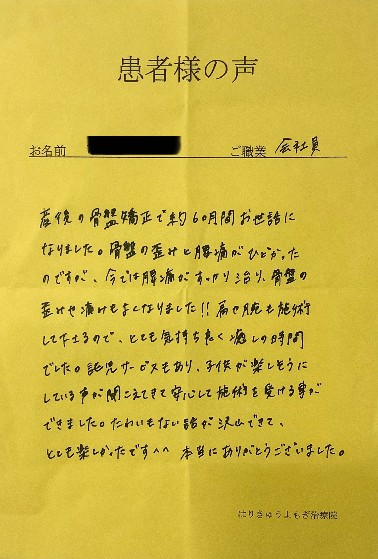 患者様の声
お名前 ご職業 会社員
産後の骨盤矯正で約6ヶ月間お世話に
なりました。骨盤の歪みと腰痛がひどかった
のですが、今では腰痛がすっかり治り、骨盤の
歪みや痛みもよくなりました!!肩や腕も施術
して下さるので、とても気持ち良く癒しの時間
でした。託児サービスもあり、子供が楽しそうに
している声が聞こえてきて安心して施術を受ける事が
できました。たわいもない話が沢山できて、
とても楽しかったです^^ 本当にありがとうございました。
はりきゅうよもぎ治療院